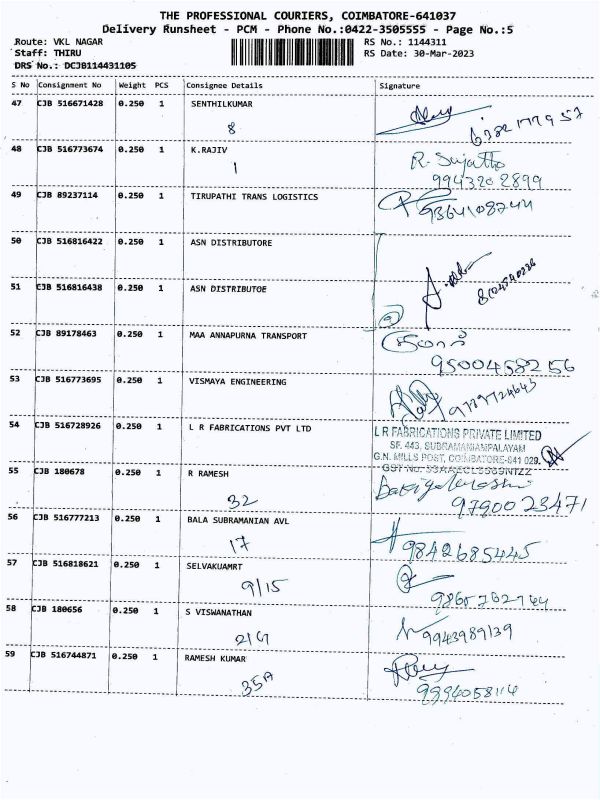 THE PROFESSIONAL COURIERS, COIMBATORE-641037
Delivery Runsheet - PCM - Phone No.:0422-3505555 - Page No.:5
Route: VKL NAGAR RS No.: 1144311
Staff: THIRU RS Date: 30-Mar-2023
DRS No.: DCJB114431105
S No Consignment No Weight PCS Consignee Details Signature
47 CJB 516671428 0.250 1 SENTHILKUMAR
8
48 CJB 516773674 0.250 1 K.RAJIV R. Sujatha
1 9943202899
49 CJB 89237114 0.250 1 TIRUPATHI TRANS LOGISTICS
9364108744
50 CJB 516816422 0.250 1 ASN DISTRIBUTORE
51 CJB 516816438 0.250 1 ASN DISTRIBUTOE
2
52 CJB 89178463 0.250 1 MAA ANNAPURNA TRANSPORT
9500458256
53 CJB 516773695 0.250 1 VISMAYA ENGINEERING
54 CJB 516728926 0.250 1 L R FABRICATIONS PVT LTD L R FABRICATIONS PRIVATE LIMITED
SF. 443, SUBRAMANIAMPALAYAM
G.N. MILLS POST, COIMBATORE-641 029.
55 CJB 180678 0.250 1 R RAMESH
32 9790023471
56 CJB 516777213 0.250 1 BALA SUBRAMANIAN AVL
17 9842685445
57 CJB 516818621 0.250 1 SELVAKUAMRT
9/15
58 CJB 180656 0.250 1 S VISWANATHAN
21G 9943989139
59 CJB 516744871 0.250 1 RAMESH KUMAR
35A 9994058114